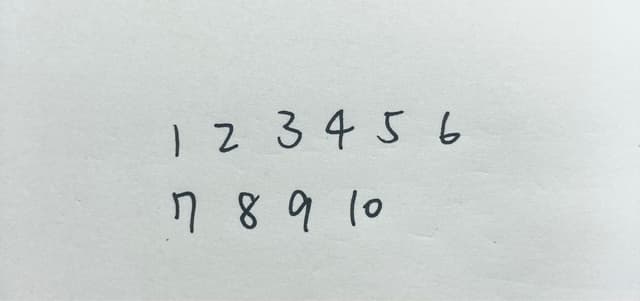 1 2 3 4 5 6
7 8 9 10